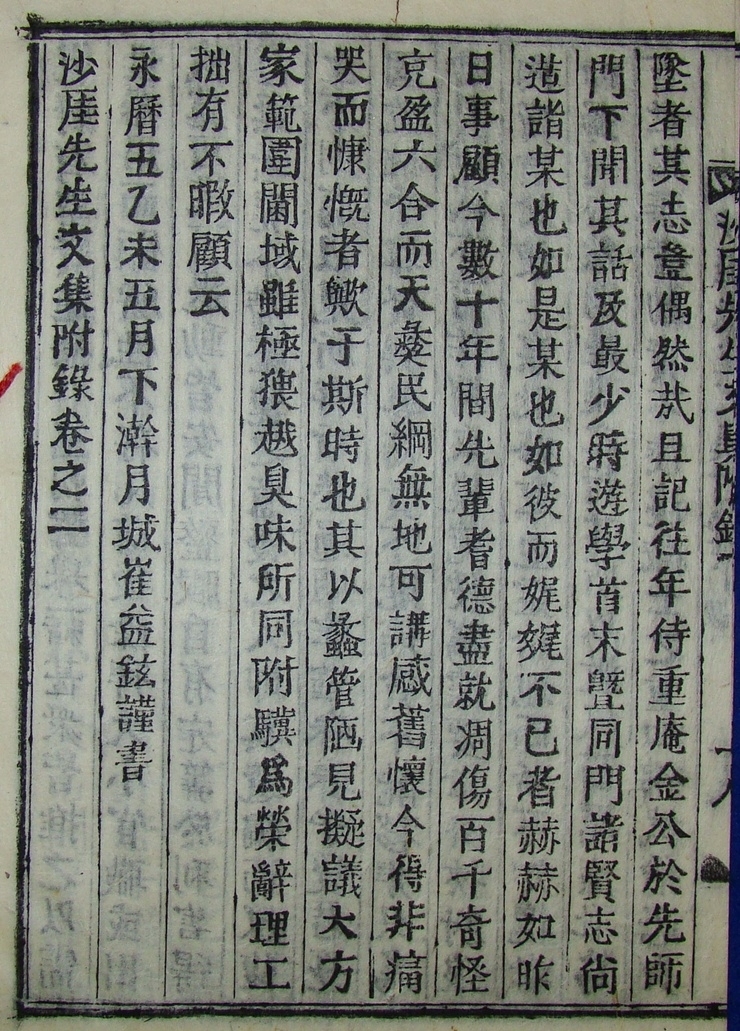 墜者其志豈偶然哉且記往年侍重庵金公於先師
門下聞其話及最少時遊學首末曁同門諸賢志尙
造詣某也如是某也如彼而娓娓不已者赫赫如昨
日事顧今數十年間先輩耆德盡就凋傷百千奇怪
充盈六合而天彜民綱無地可講感舊懷今得非痛
哭而慷慨者歟于斯時也其以蠡管陋見擬議大方
家範圍閫域雖極猥越臭味所同附驥爲榮辭理工
拙有不暇顧云
永曆五乙未五月下澣月城崔益鉉謹書
沙厓先生文集附錄卷之二
沙厓先生文集附錄